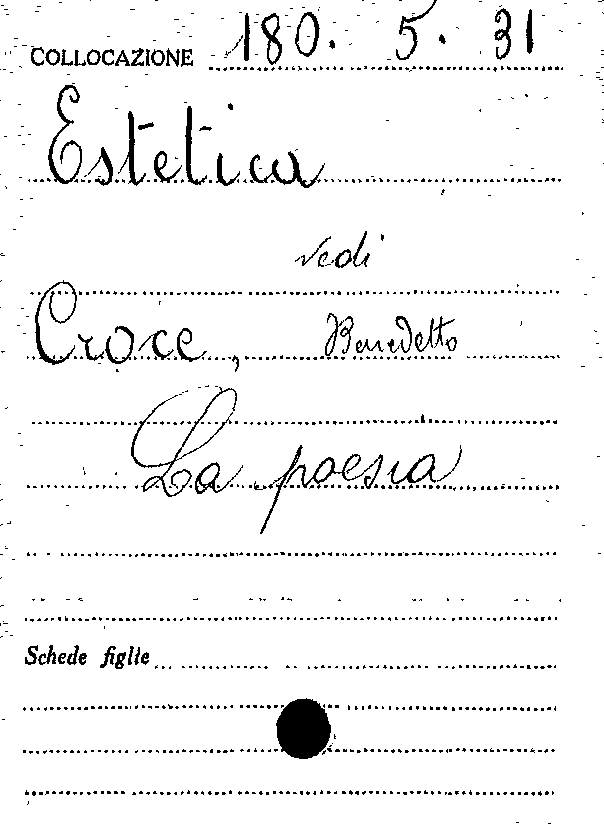 COLLOCAZIONE 180. 5. 31
Estetica
vedi
Croce, Benedetto
La poesia
Schede figlie